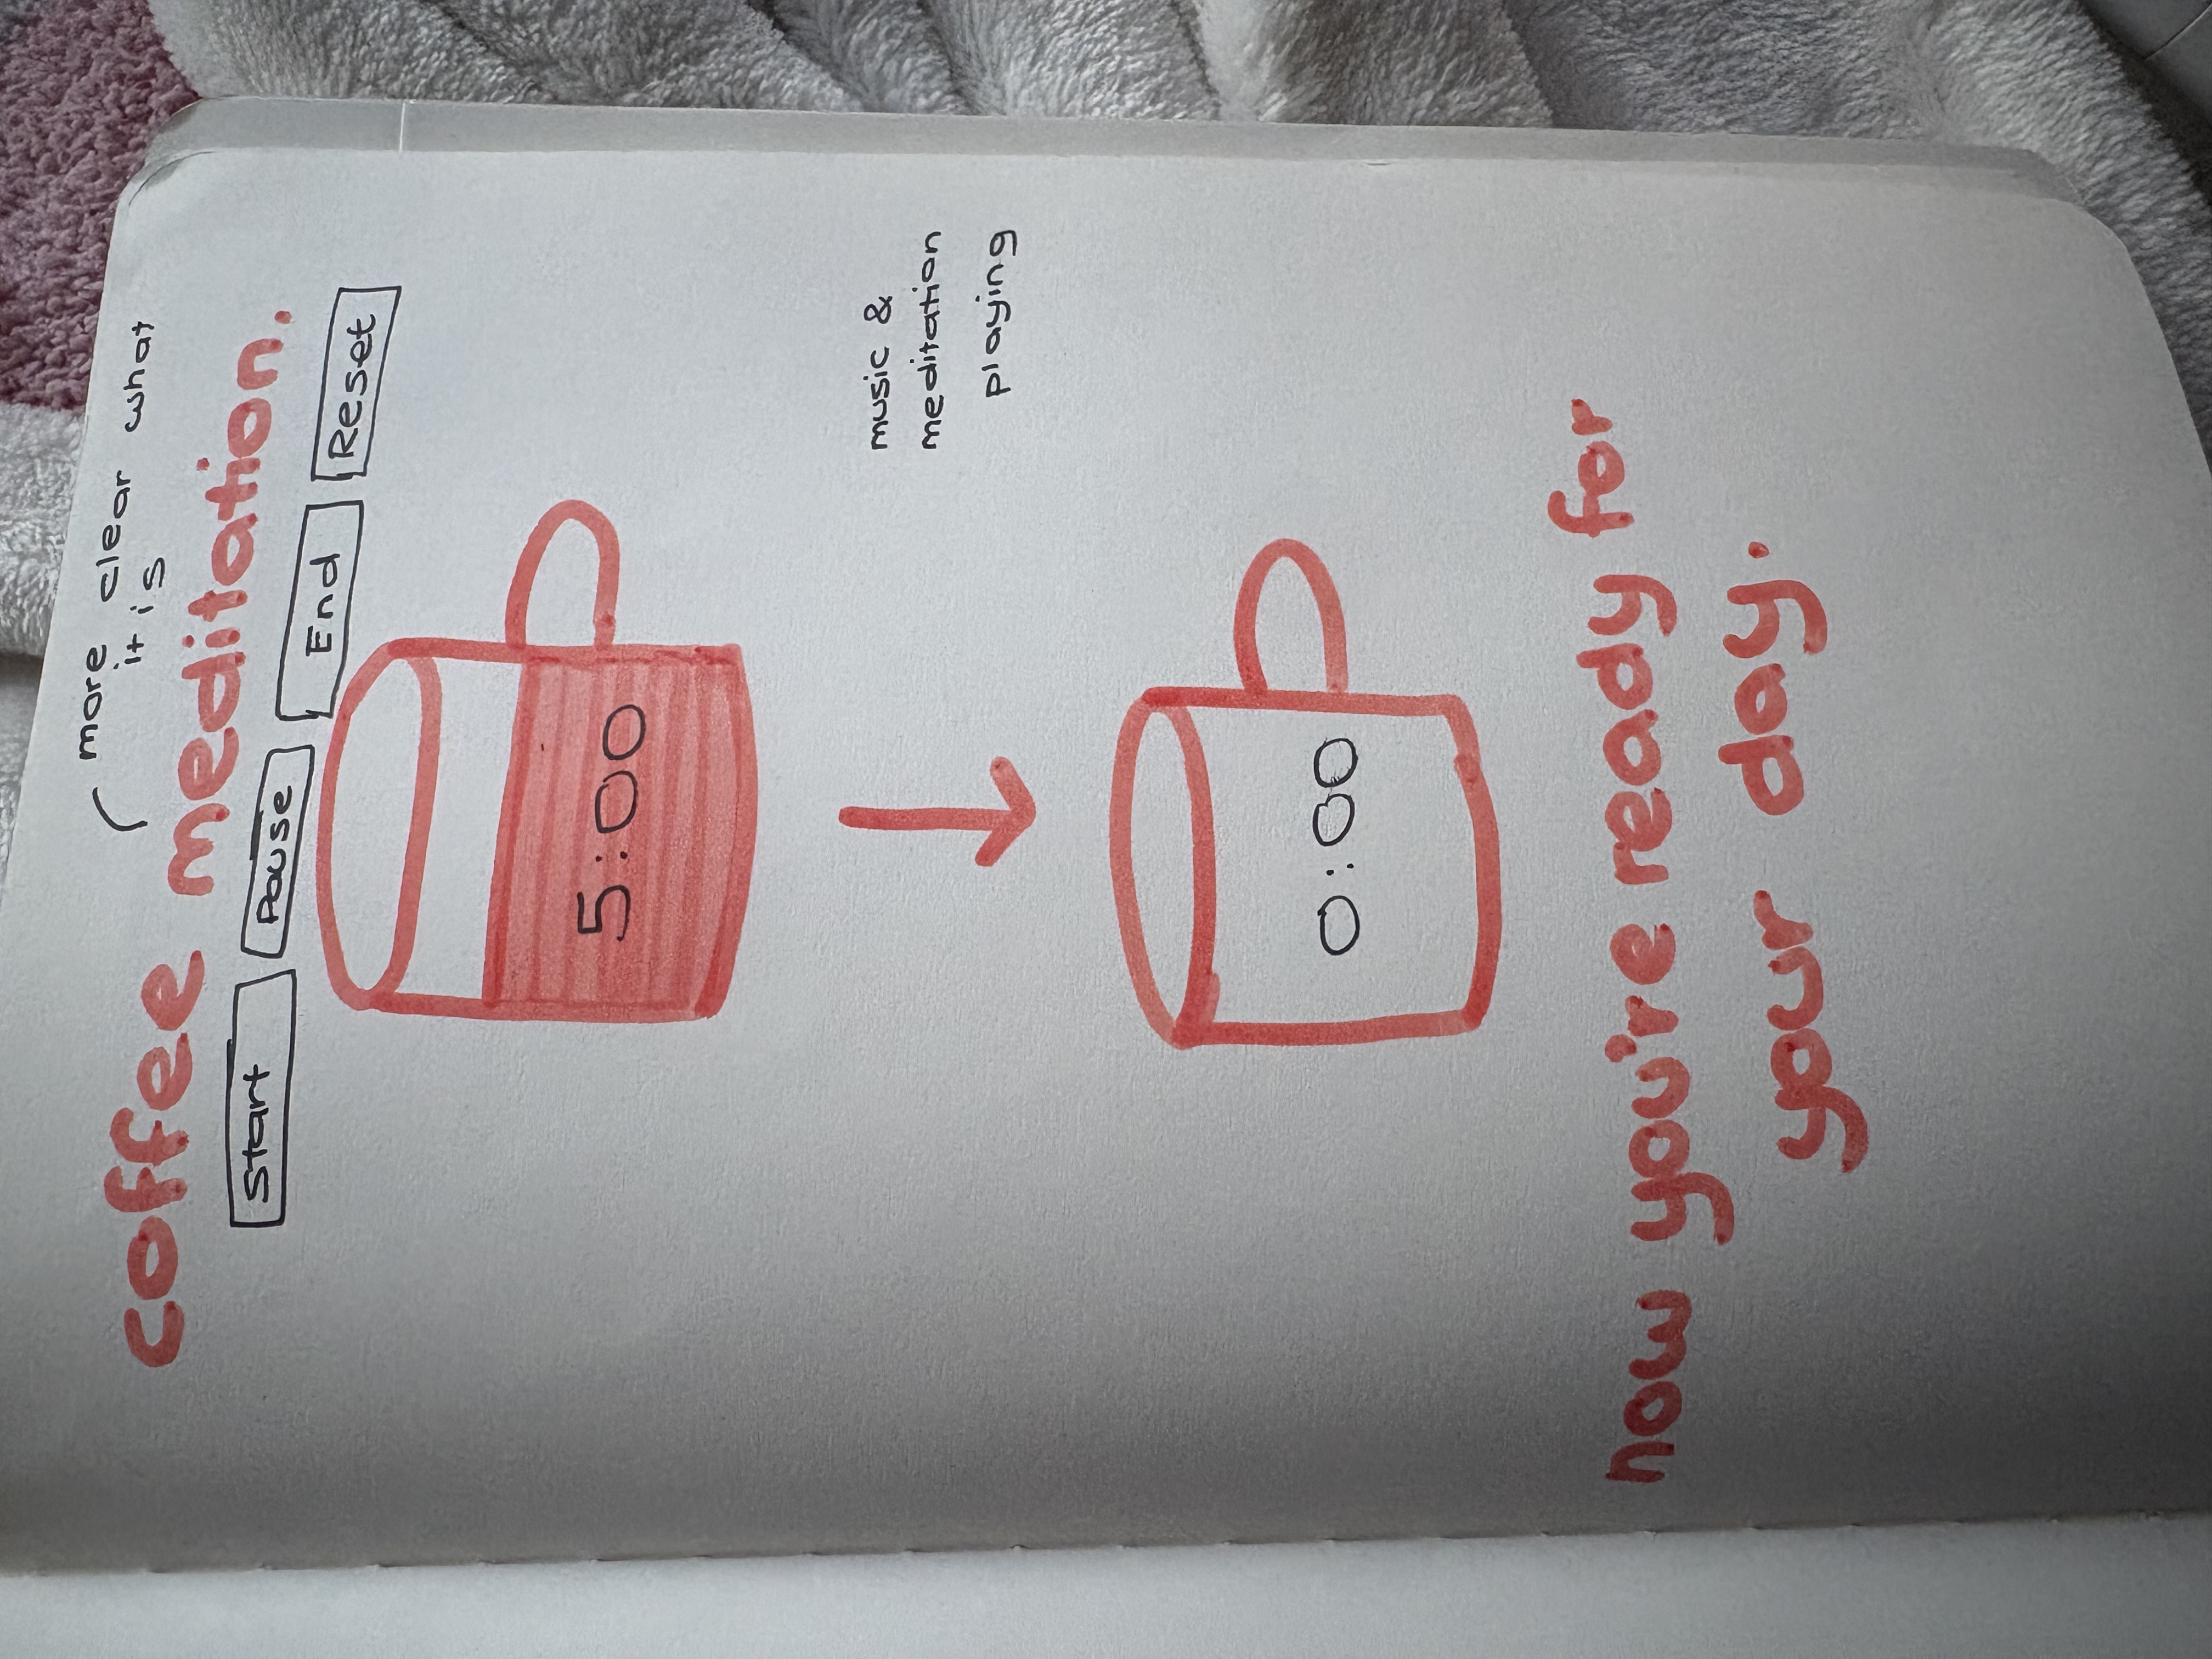 more clear what
it is
coffee meditation.
Start Pause End Reset
5:00
music &
meditation
playing
0:00
now you're ready for
your day.